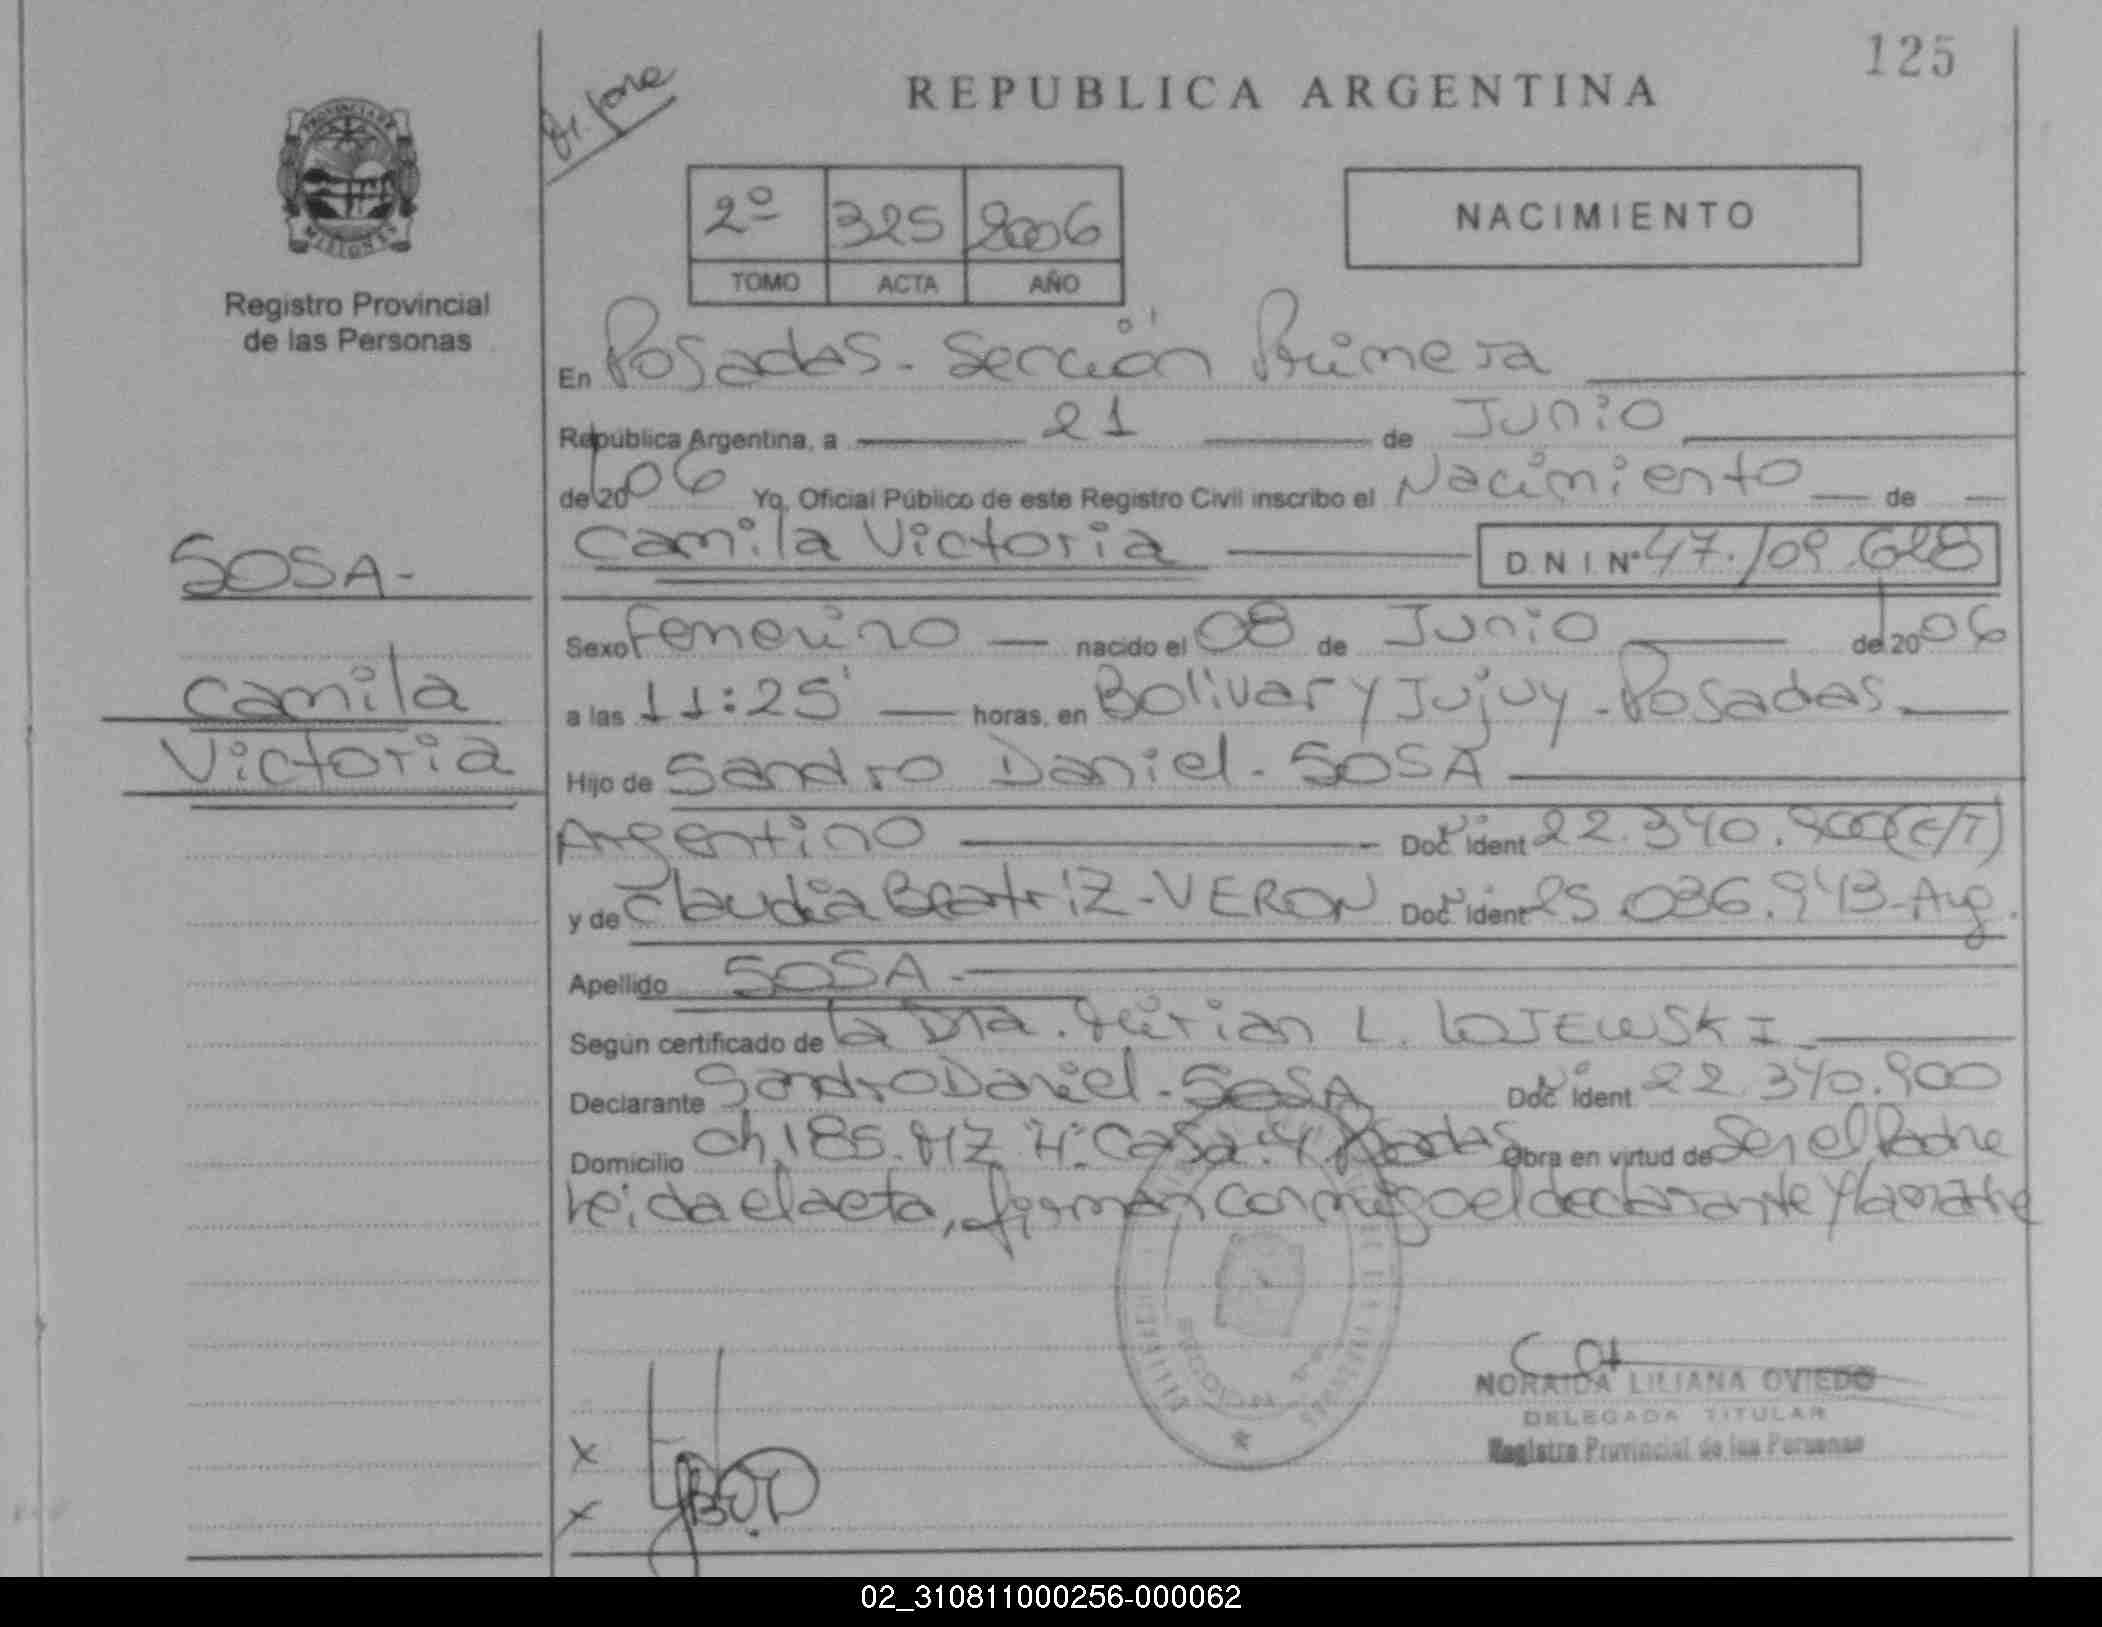 125
REPUBLICA ARGENTINA
PROVINCIA DE
MISIONES
Registro Provincial
de las Personas
2º 325 2006
TOMO ACTA AÑO
NACIMIENTO
En Posadas - Sección Primera
República Argentina, a 21 de Junio
de 2006 Yo, Oficial Público de este Registro Civil inscribo el Nacimiento de
Camila Victoria D N I Nº 47.109.628
SOSA-
Camila
Victoria
Sexo Femenino nacido el 08 de Junio de 2006
a las 11:25' horas, en Bolivar y Jujuy - Posadas
Hijo de Sandro Daniel - SOSA
Argentino Doc. Ident 22.340.900 (C/T)
y de Claudia Beatriz - VERON Doc. Ident 25.036.943 - Arg.
Apellido SOSA -
Según certificado de la Dra. Mirian L. LOJEWSKI
Declarante Sandro Daniel - SOSA Doc. Ident 22.340.900
Domicilio Ch. 185. MZ 4. Casa. 4. Posadas Obra en virtud de Ser el Padre
leída el acta, firman conmigo el declarante y la madre
NORAIDA LILIANA OVIEDO
DELEGADA TITULAR
Registro Provincial de las Personas
X
X
02_310811000256-000062